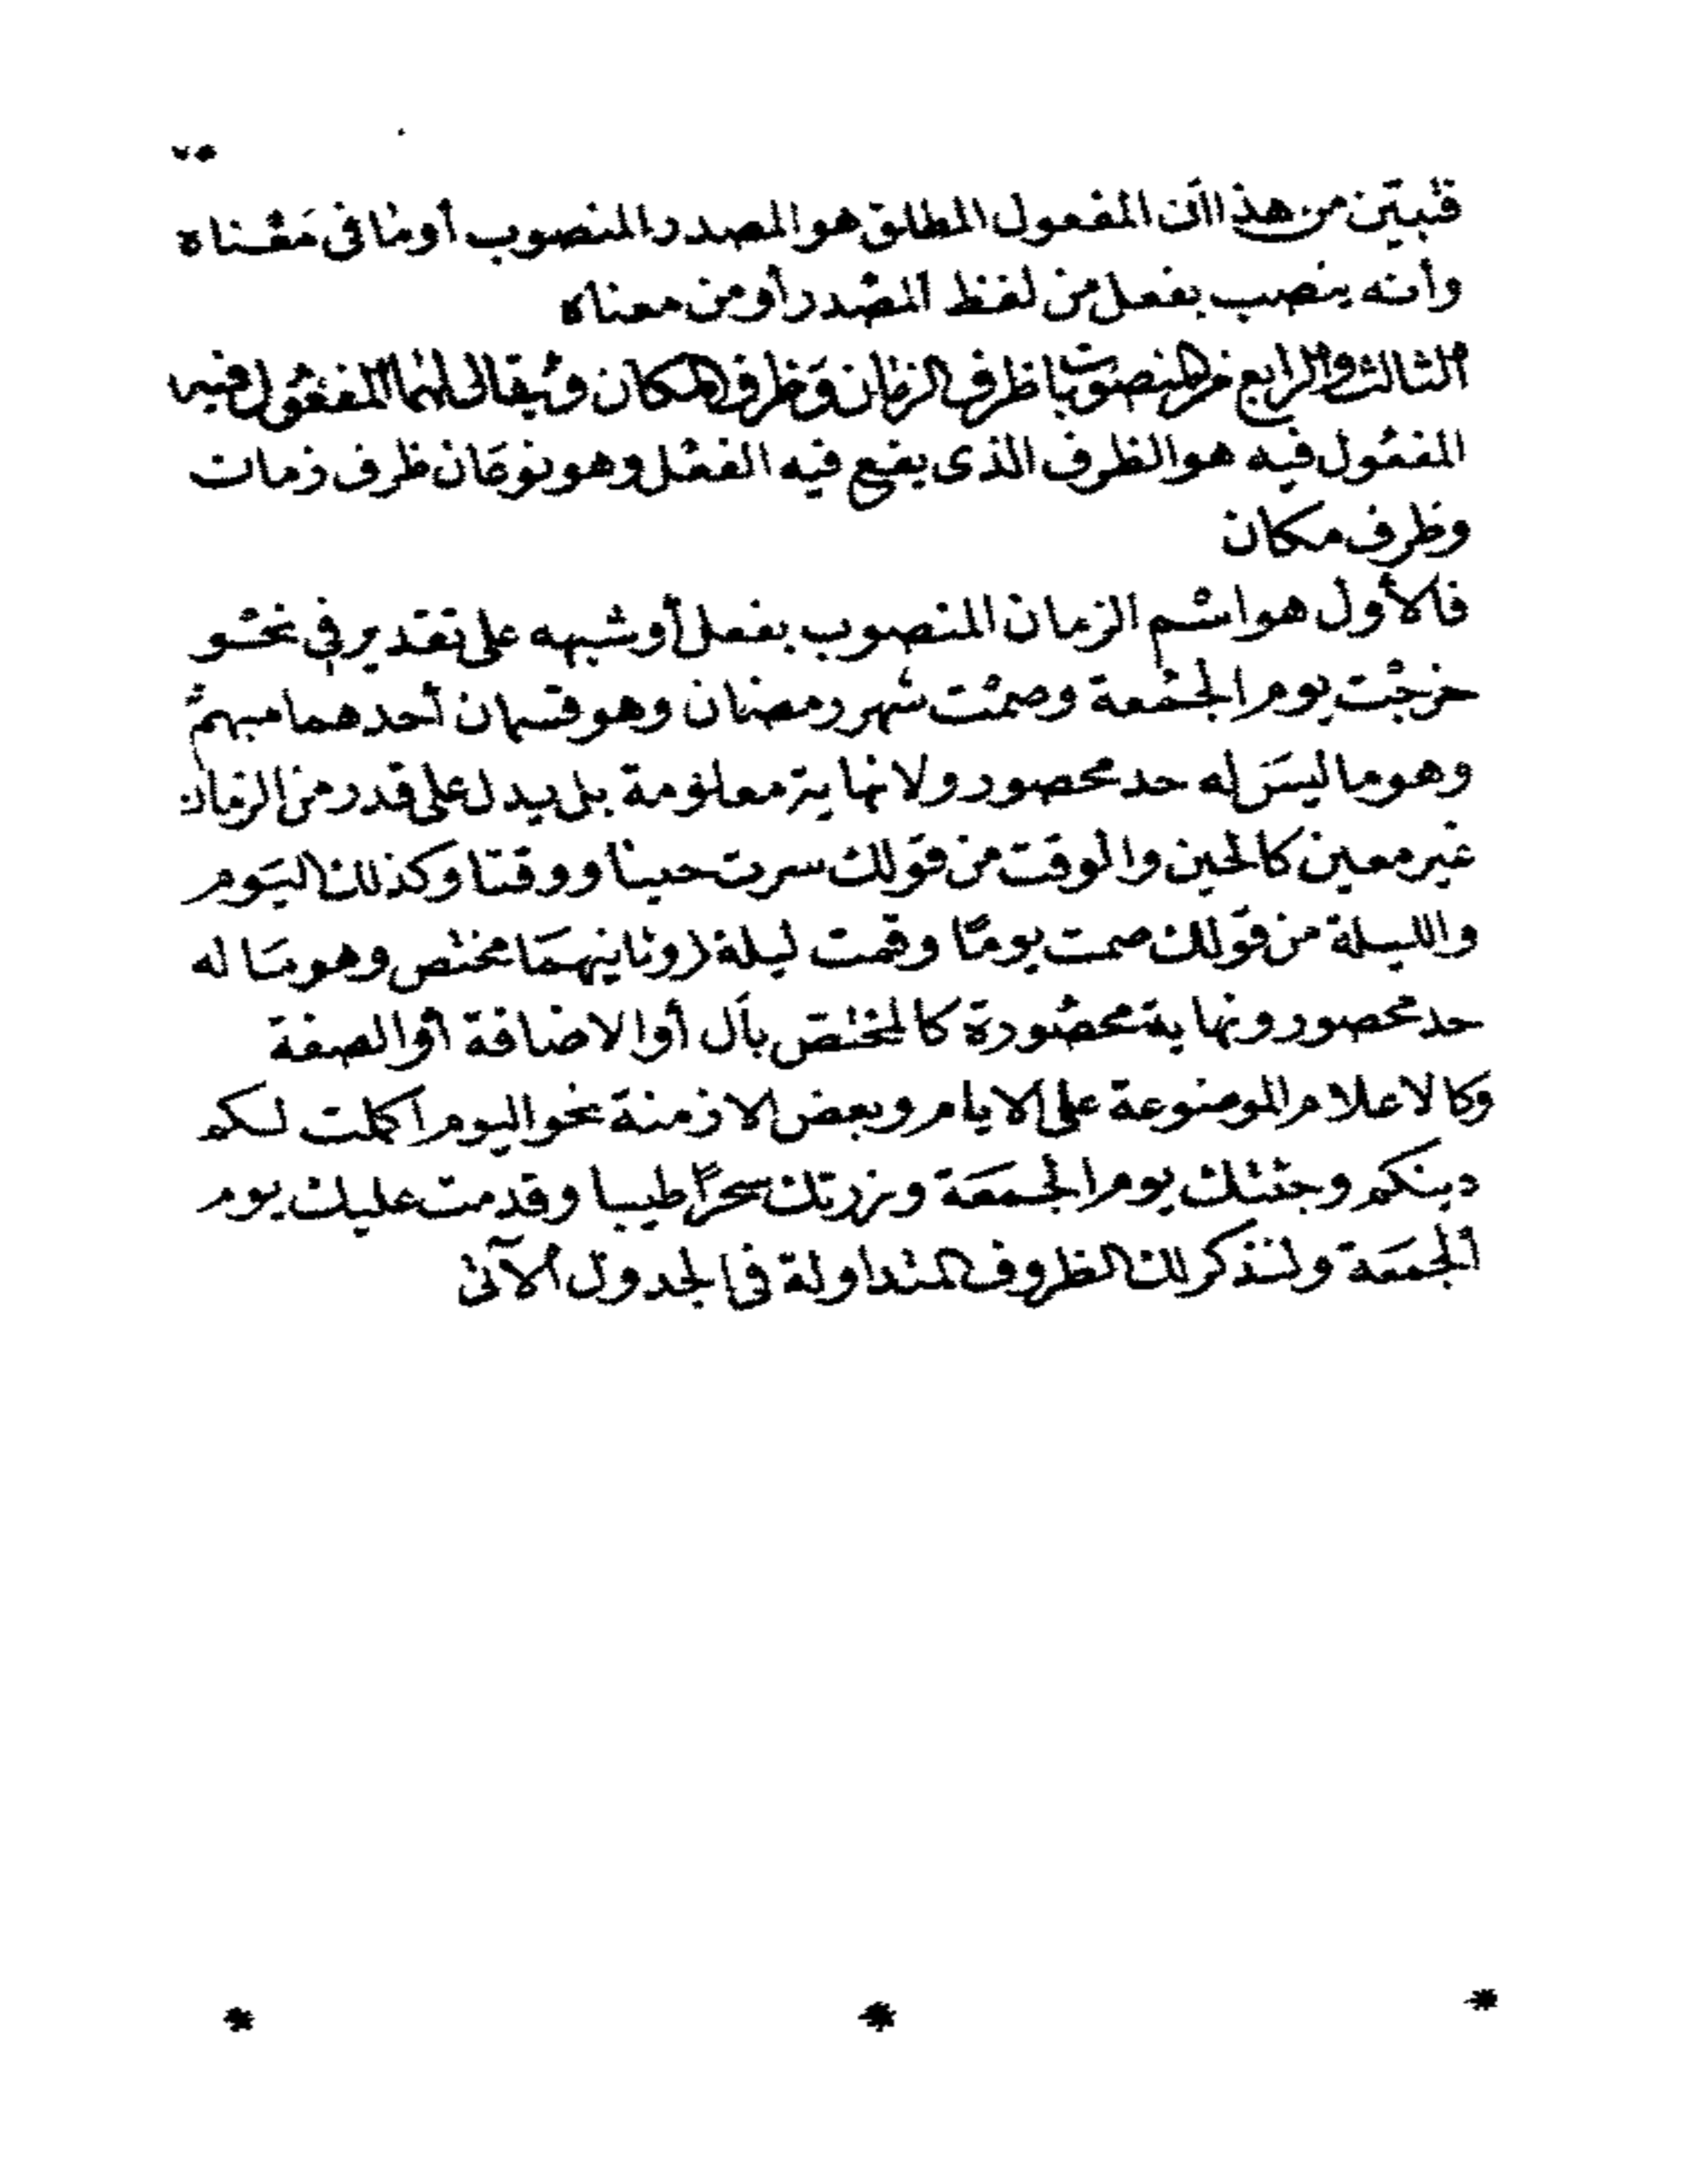 فتبيّن من هذا أن المفعول المطلق هو المصدر المنصوب أو ما فى مَعْناه
وأنه ينصب بفعل من لفظ المصْدر أو من معناه
الثالث والرابع من المنصوبات ظرف الزمان وَظرف المكان وَيُقال لهما المفعُول فيه
المفعُول فيه هو الظرف الذى يقع فيه الفعْل وهو نوعَان ظرف زمان
وظرف مكان
فالأول هو اسْم الزمان المنصوب بفعل أو شبهه على تقدير فى نحْو
خرجْت يوم الجمْعة وصمْت شهر رمضان وهو قسمان أحدهما مبهمٌ
وهو ما ليسَ له حد محصور ولا نهاية معلومة بل يدل على قدر من الزمان
غير معين كالحين والوقت من قوَلك سرت حينا ووقتا وكذلك اليَوم
والليلة من قوَلك صمت يومًا وقمت ليلة وثانيهمَا مختص وهو مَا له
حد محصور ونهاية محصُورة كالمختصّ بأَل أو الاضافة أو الصفة
وكالاعلام الموضوعة على الايام وبعض الازمنة نحو اليوم اكملت لكم
دينكم وجئتك يوم الجمعَة وزرتك سحرًا طيبا وقدمت عليك يوم
الجمعَة ولنذكر لك الظروف المتداولة فى الجدول الآتى